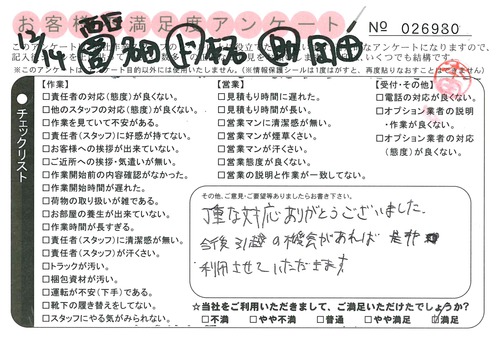 お客様満足度アンケート
No 026980
12/14
記入
※このアンケートは、アンケート目的以外には使用いたしません。(※情報保護シールは1度はがすと、再度貼りなおすことはできません)
チェックリスト
【作業】
□責任者の対応(態度)が良くない。
□他のスタッフの対応(態度)が良くない。
□作業を見ていて不安がある。
□責任者(スタッフ)に好感が持てない。
□お客様への挨拶が出来ていない。
□ご近所への挨拶・気遣いが無い。
□作業開始前の内容確認がなかった。
□作業開始時間が遅れた。
□荷物の取り扱いが雑である。
□お部屋の養生が出来ていない。
□作業時間が長すぎる。
□責任者(スタッフ)に清潔感が無い。
□責任者(スタッフ)が汗くさい。
□トラックが汚い。
□梱包資材が汚い。
□運転が不安(下手)である。
□靴下の履き替えをしてない。
□スタッフにやる気がみられない。
【営業】
□見積もり時間に遅れた。
□見積もり時間が長い。
□営業マンに清潔感が無い。
□営業マンが煙草くさい。
□営業マンが汗くさい。
□営業態度が良くない。
□営業の説明と作業が一致してない。
【受付・その他】
□電話の対応が良くない。
□オプション業者の説明
・作業が良くない。
□オプション業者の対応
(態度)が良くない。
その他、ご意見・ご要望等ありましたらお書き下さい。
丁重な対応ありがとうございました。
今後引越の機会があれば 是非
利用させていただきます
☆当社をご利用いただきまして、ご満足いただけたでしょうか?
□不満 □やや不満 □普通 □やや満足 ☑満足